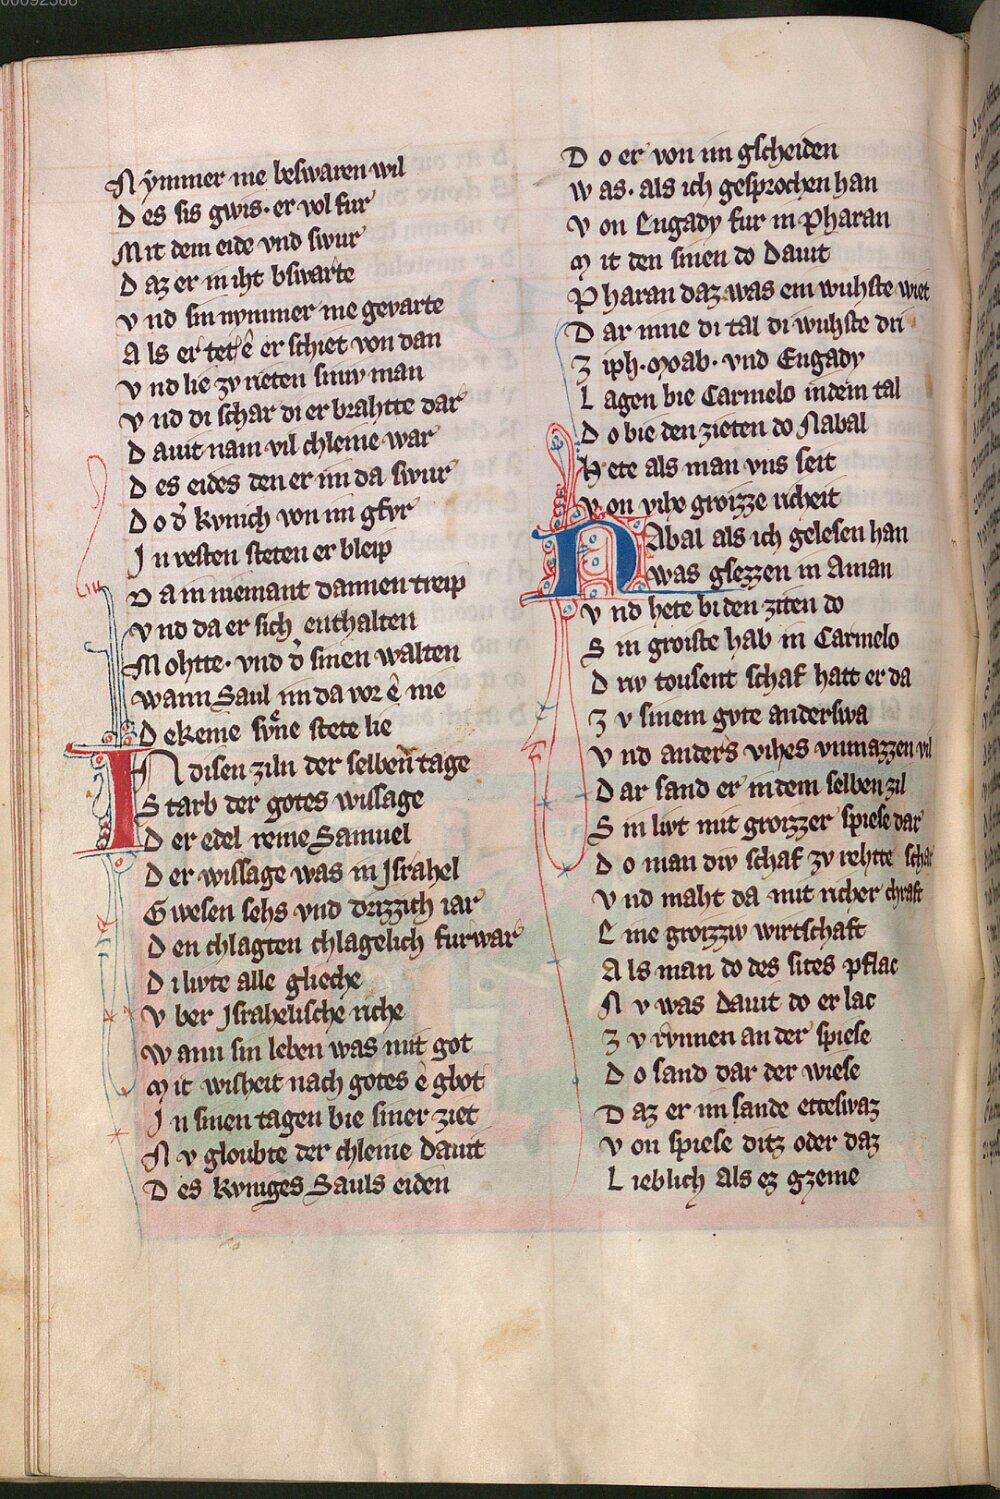 00092588
Nymmer me beswaren wil
Des sis gwis. er vol fur
Mit dem eide vnd swur
Daz er in iht bswarte
vnd sin nymmer me gevarte
Als er tet ê er schiet von dan
vnd lie zv rieten sinw man
vnd di schar di er brahtte dar
Dauit nam vil chleine war
Des eides den er im da swur
Do dˢ kvnich von im gfvr
In vesten steten er bleip
Da in niemant dannen treip
vnd da er sich enthalten
Mohtte. vnd dˢ sinen walten
wann Saul im da vor ê nie
Dekeine sv̊ne stete lie
IN disen ziln der selben tage
Starb der gotes wissage
Der edel reine Samuel
Der wissage was in Jsrahel
Gwesen sehs vnd drizzich iar
Den chlagten chlagelich furwar
Di livte alle glieche
vber Jsrahelische riche
wann sin leben was mit got
Mit wisheit nach gotes ê gbot
In sinen tagen bie siner ziet
Nv gloubte der chleine Dauit
Des kvniges Sauls eiden
Do er von im gscheiden
was. als ich gesprochen han
von Engady fur in Pharan
Mit den sinen do Dauit
Pharan daz was ein wuhste wiet
Dar inne di tal di wuhste dri
Ziph. Moab. vnd Engady
Lagen bie Carmelo in dem tal
Do bie den zieten do Nabal
Hete als man vns seit
von vihe groizze richeit
NAbal als ich gelesen han
was gsezzen in Aman
vnd hete bi den ziten do
Sin groiste hab in Carmelo
Driv tousent schaf hatt er da
Zv sinem gvte anderswa
vnd anders vihes vnmazzen vil
Dar sand er in dem selben zil
Sin livt mit groizzer spiese dar
Do man div schaf zv rehtte schar
vnd maht da mit richer chraft
Eine groizziv wirtschaft
Als man do des sites pflac
Nv was Dauit do er lac
Zv rv̂nnen an der spiese
Do sand dar der wiese
Daz er im sande etteswaz
von spiese ditz oder daz
Lieblich als ez gzeme